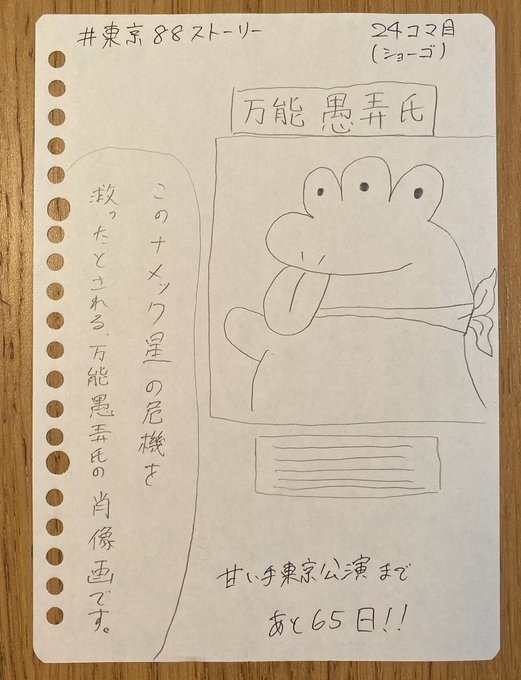 #東京88ストーリー
24コマ目
(ショーゴ)
万能 愚弄氏
このナメック星の危機を
救ったとされる、万能愚弄氏の肖像画です。
甘い手東京公演まで
あと65日!!